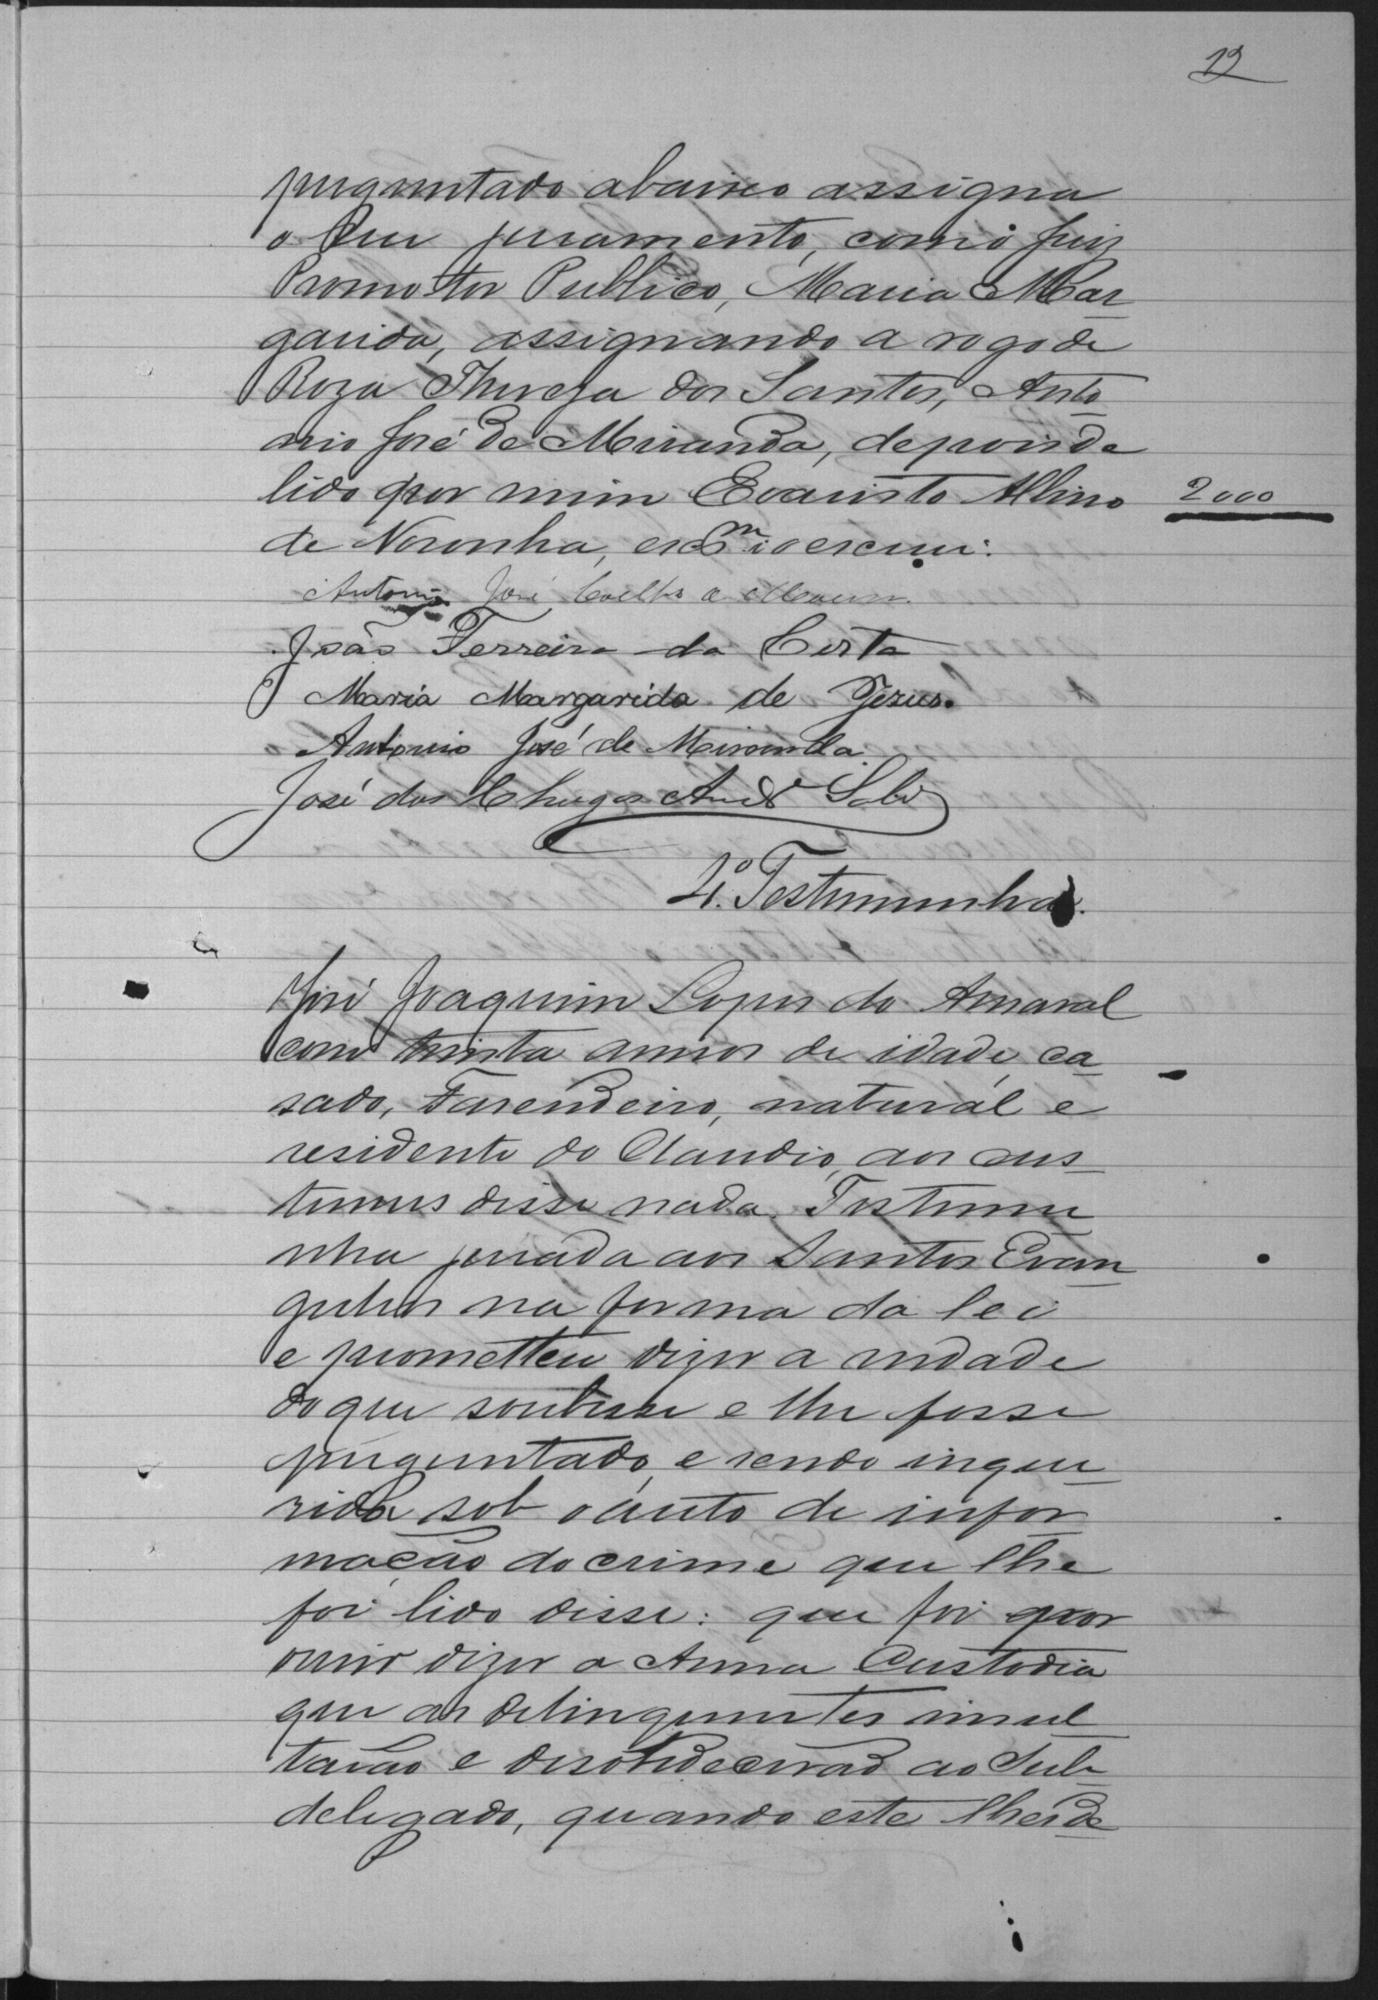 12
perguntado abaixo assigna
o seu juramento, como Juiz
Promotor Publico, Maria Mar-
garida, assignando a rogo de
Roza Thereza dos Santos, Anto-
nio José de Miranda, depois de
lido por mim Evaristo Albino 2000
de Noronha, escm. io escrevi.
Antonio José Coelho
João Ferreira da Costa
Maria Margarida de Jezus.
Antonio José de Miranda
José das Chagas Andr.e
4.º Testemunha.
José Joaquim Lopes do Amaral
com trinta annos de idade, ca-
sado, Fasendeiro, natural e
residente do Claudio, aos cus-
tumes disse nada. Testemu
nha jurada aos Santos Evan
gelhos na forma da lei
e prometteu dizer a verdade
do que soubesse e lhe fosse
perguntado, e sendo inque-
rida sob o auto de infor
mação do crime que lhe
foi lido disse: que foi por
ouvir dizer a Anna Custodia
que as delinquentes insul
tarão e desobedecerão ao Sub-
delegado, quando este lhes de-